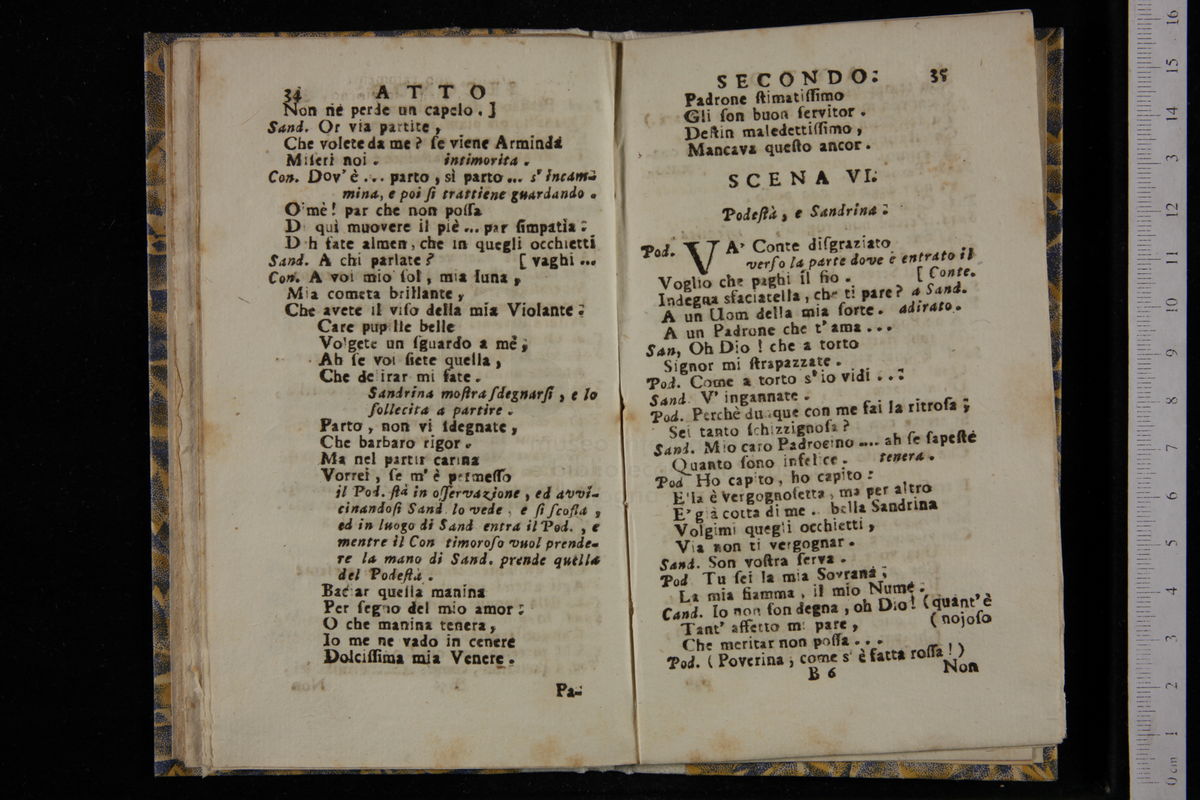 34 ATTO
Non ne perde un capelo. ]
Sand. Or via partite,
Che volete da me? ſe viene Arminda
Miſeri noi. intimorita.
Con. Dov'è ... parto, sì parto ... s'incam-
mina, e poi ſi trattiene guardando.
O'mè! par che non poſſa
Di qui muovere il piè ... par ſimpatìa:
Deh fate almen, che in quegli occhietti
Sand. A chi parlate? [ vaghi ...
Con. A voi mio ſol, mia luna,
Mia cometa brillante,
Che avete il viſo della mia Violante:
Care pupille belle
Volgete un ſguardo a mè;
Ah ſe voi ſiete quella,
Che delirar mi fate.
Sandrina moſtra ſdegnarſi, e lo
ſollecita a partire.
Parto, non vi ſdegnate,
Che barbaro rigor.
Ma nel partir carina
Vorrei, ſe m'è permeſſo
il Pod. ſtà in oſſervazione, ed avvi-
cinandoſi Sand. lo vede, e ſi ſcoſta,
ed in luogo di Sand entra il Pod., e
mentre il Con timoroſo vuol prende-
re la mano di Sand. prende quella
del Podeſtà.
Baciar quella manina
Per ſegno del mio amor:
O che manina tenera,
Io me ne vado in cenere
Dolciſſima mia Venere.
Pa-
SECONDO. 35
Padrone ſtimatiſſimo
Gli ſon buon ſervitor.
Deſtin maledettiſſimo,
Mancava queſto ancor.
SCENA VI.
Podeſtà, e Sandrina.
Pod. VA' Conte diſgraziato
verſo la parte dove è entrato il
Voglio che paghi il fio. [ Conte.
Indegna sfaciatella, che ti pare? a Sand.
A un Uom della mia ſorte. adirato.
A un Padrone che t'ama ...
San, Oh Dio! che a torto
Signor mi ſtrapazzate.
Pod. Come a torto s'io vidi ...
Sand. V' ingannate.
Pod. Perchè dunque con me fai la ritroſa,
Sei tanto ſchizzignoſa?
Sand. Mio caro Padroncino .... ah ſe ſapeſte
Quanto ſono infelice. tenera.
Pod Ho capito, ho capito:
E'la è vergognoſetta, ma per altro
E' già cotta di me .. bella Sandrina
Volgimi quegli occhietti,
Via non ti vergognar.
Sand. Son voſtra ſerva.
Pod Tu ſei la mia Sovrana,
La mia fiamma, il mio Nume.
Cand. Io non ſon degna, oh Dio! (quant'è
Tant' affetto mi pare, (nojoſo
Che meritar non poſſa ...
Pod. (Poverina, come s' è fatta roſſa!)
B 6 Non